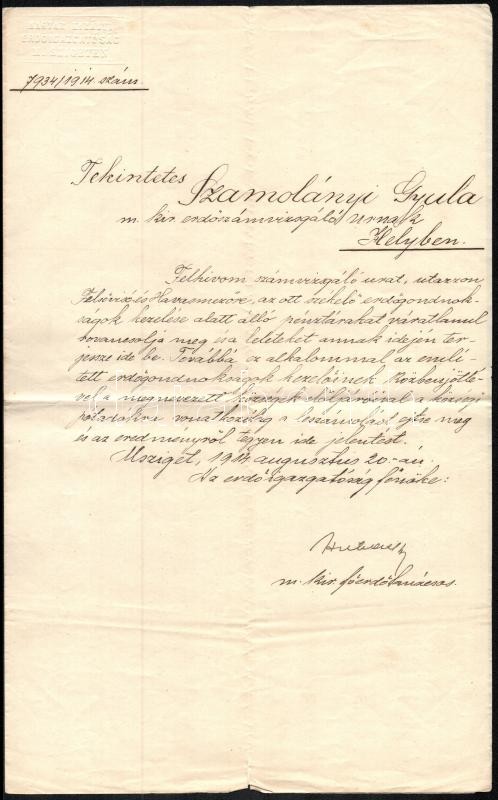 MAGYAR KIRÁLYI
ERDŐIGAZGATÓSÁG
7934/1914. szám.
Tekintetes
Szamolányi Gyula
m. kir. erdőszámvizsgáló urnak
Helyben.
Felhivom számvizsgáló urat, utazzon
Felsővisó és Havasmezőre, az ott székelő erdőgondnok-
ságok kezelése alatt álló pénztárakat váratlanul
rovancsolja meg és a leleteket annak idején ter-
jessze ide be. Továbbá ez alkalommal az emlí-
tett erdőgondnokságok kezelőinek közbenjötté-
vel a megnevezett községek elöljáróival a községi
pótadókra vonatkozólag a leszámolást ejtse meg
és az eredményről tegyen ide jelentést.
Msziget, 1914 augusztus 20.-án.
Az erdőigazgatóság főnöke:
m. kir. főerdőtanácsos.